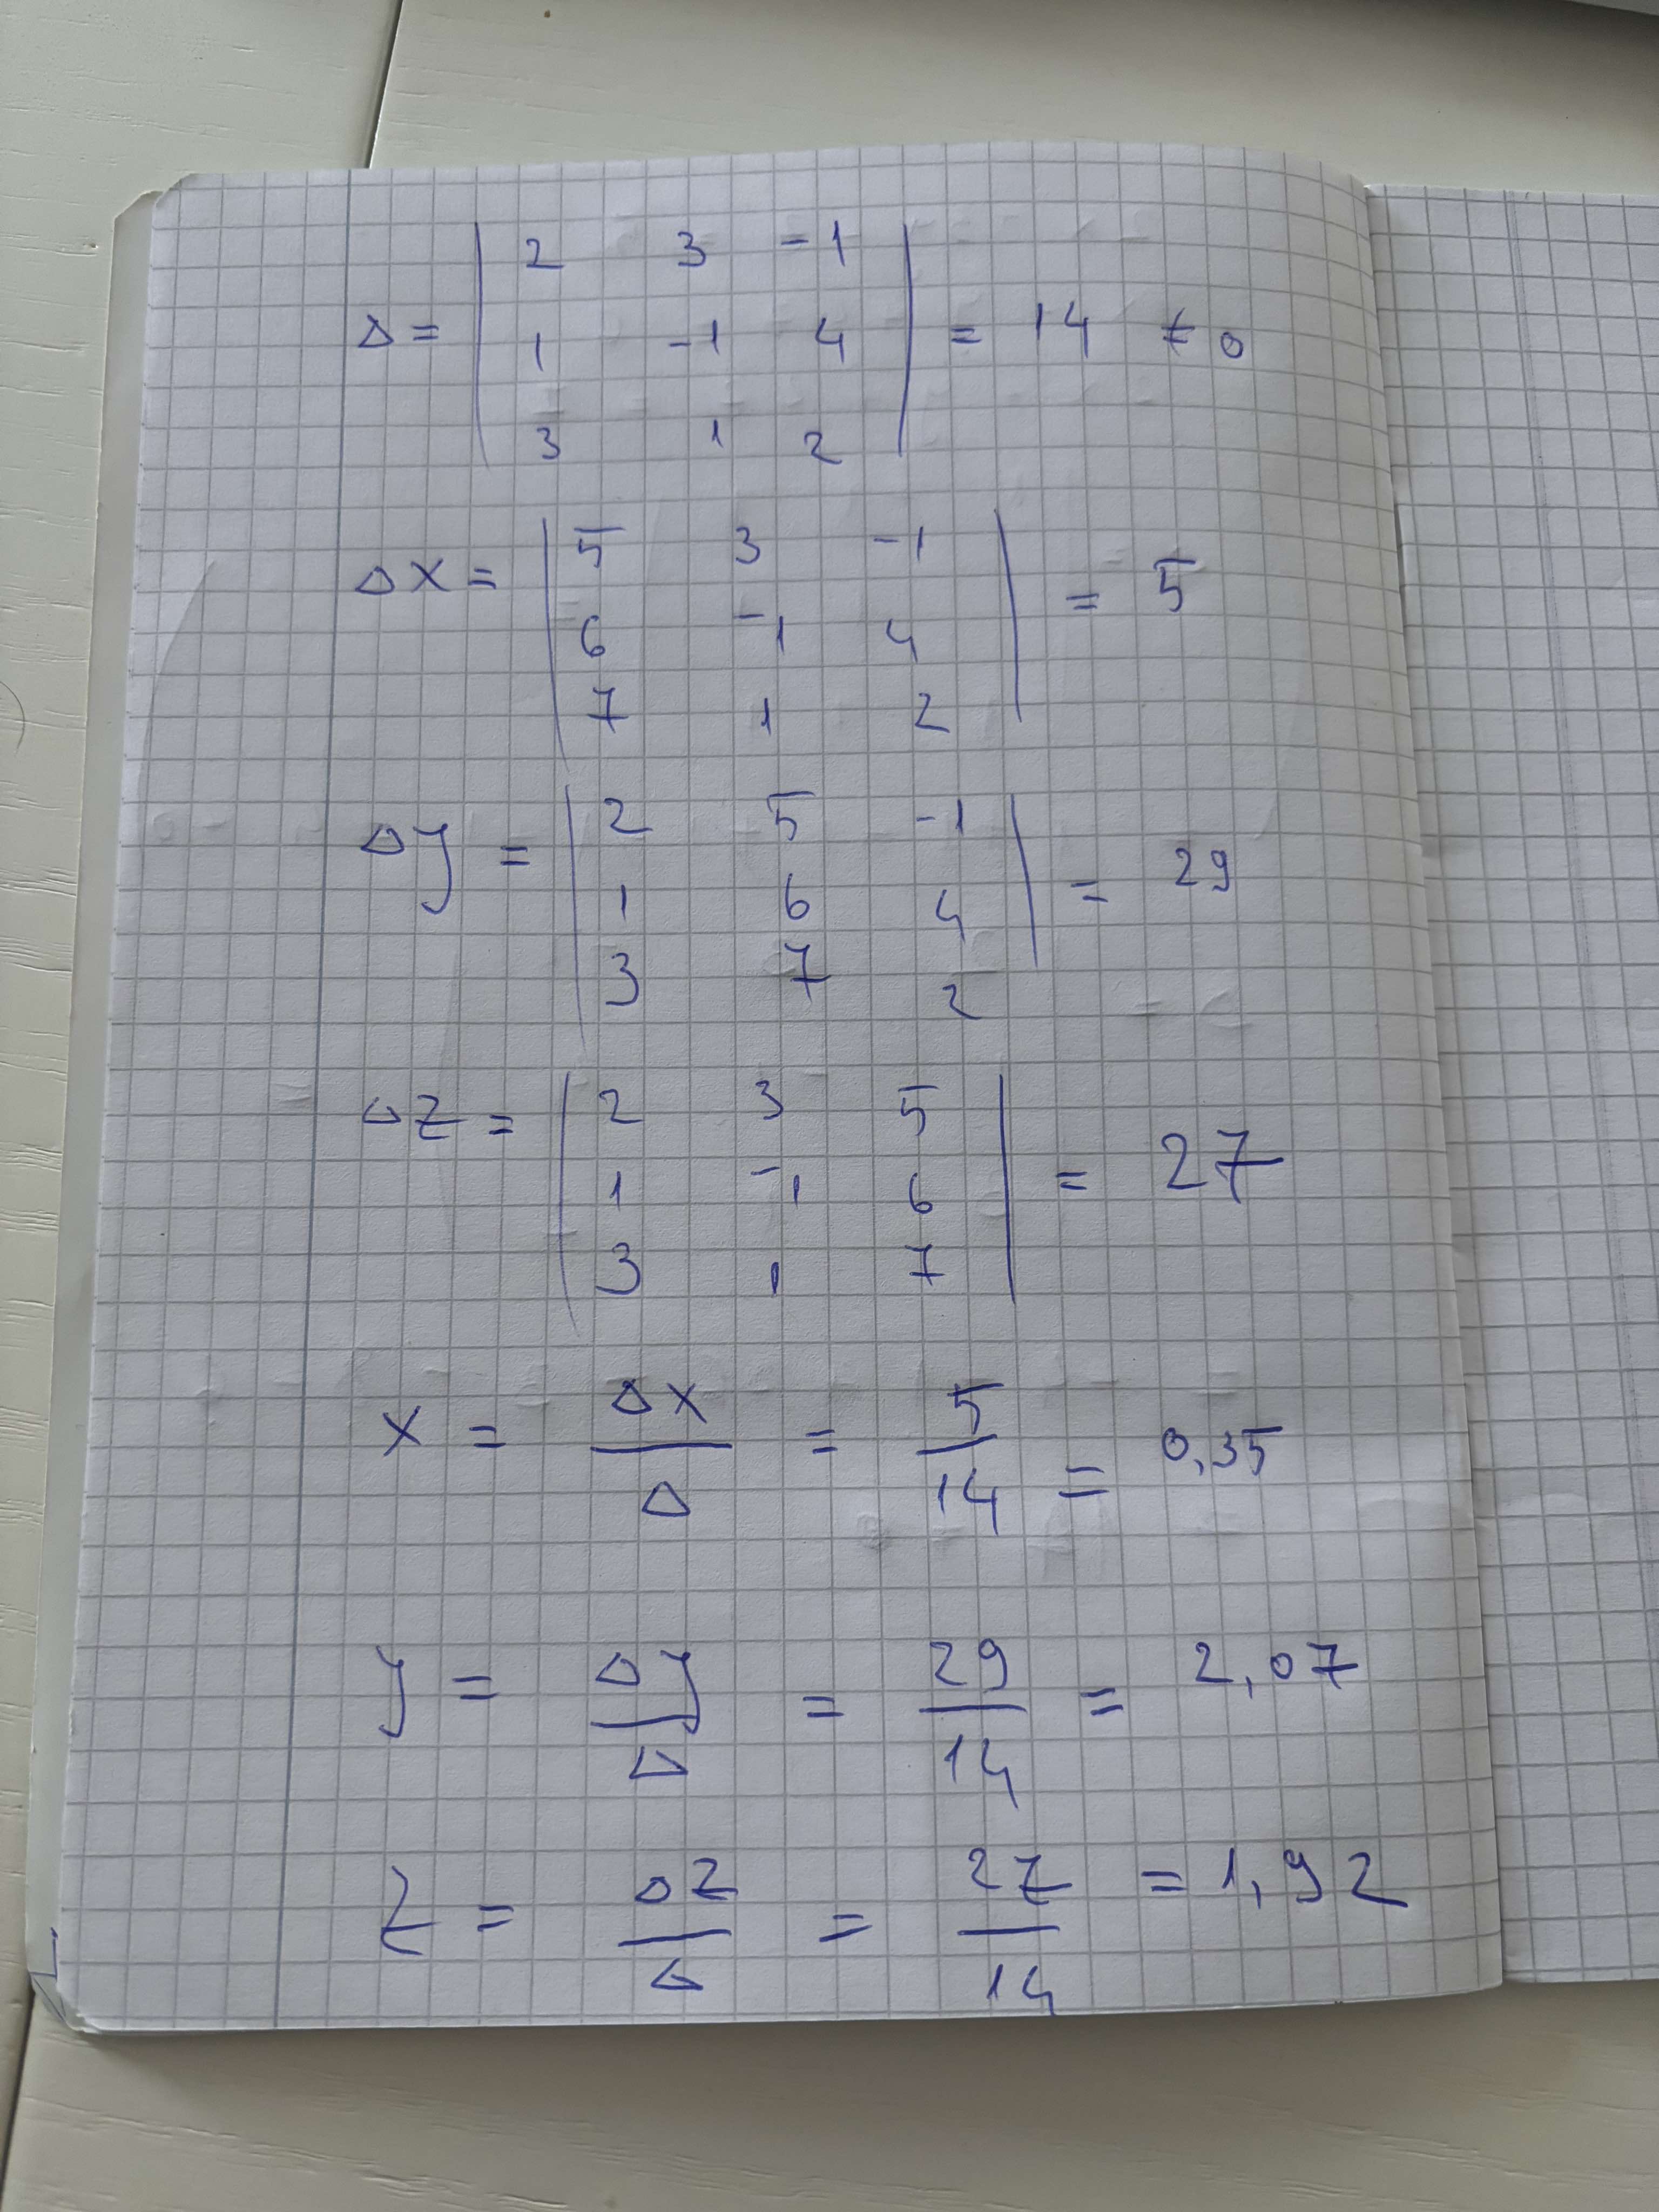 Δ = | 2 3 -1 |
| 1 -1 4 | = 14 ≠ 0
| 3 1 2 |
Δx = | 5 3 -1 |
| 6 -1 4 | = 5
| 7 1 2 |
Δy = | 2 5 -1 |
| 1 6 4 | = 29
| 3 7 2 |
Δz = | 2 3 5 |
| 1 -1 6 | = 27
| 3 1 7 |
x = Δx / Δ = 5 / 14 = 0,35
y = Δy / Δ = 29 / 14 = 2,07
z = Δz / Δ = 27 / 14 = 1,92